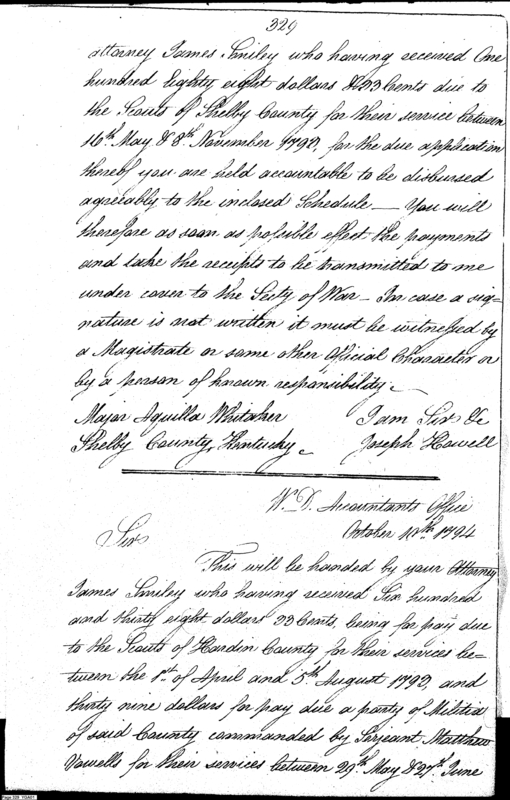 329
attorney James Smiley who having received One
hundred Eighty eight dollars & 23 Cents due to
the Scouts of Shelby County for their service between
16th May & 8th November 1793, for the due application
thereof you are held accountable to be disbursed
agreeably to the inclosed Schedule — You will
therefore as soon as possible effect the payments
and take the receipts to be transmitted to me
under cover to the Secty of War — In case a sig=
nature is not written it must be witnessed by
a Magistrate or some other Official Character or
by a person of known responsibility.
Major Aquilla Whitaker I am Sir &c
Shelby County, Kentucky. Joseph Howell
W. D. Accountants Office
October 10th 1794
Sir
This will be handed by your Attorney
James Smiley who having received Six hundred
and thirty eight dollars 23 Cents, being for pay due
to the Scouts of Hardin County for their services be=
tween the 1st of April and 5th August 1793, and
thirty nine dollars for pay due a party of Militia
of said County commanded by Serjeant Matthew
Vowells for their services between 29th May & 27th June